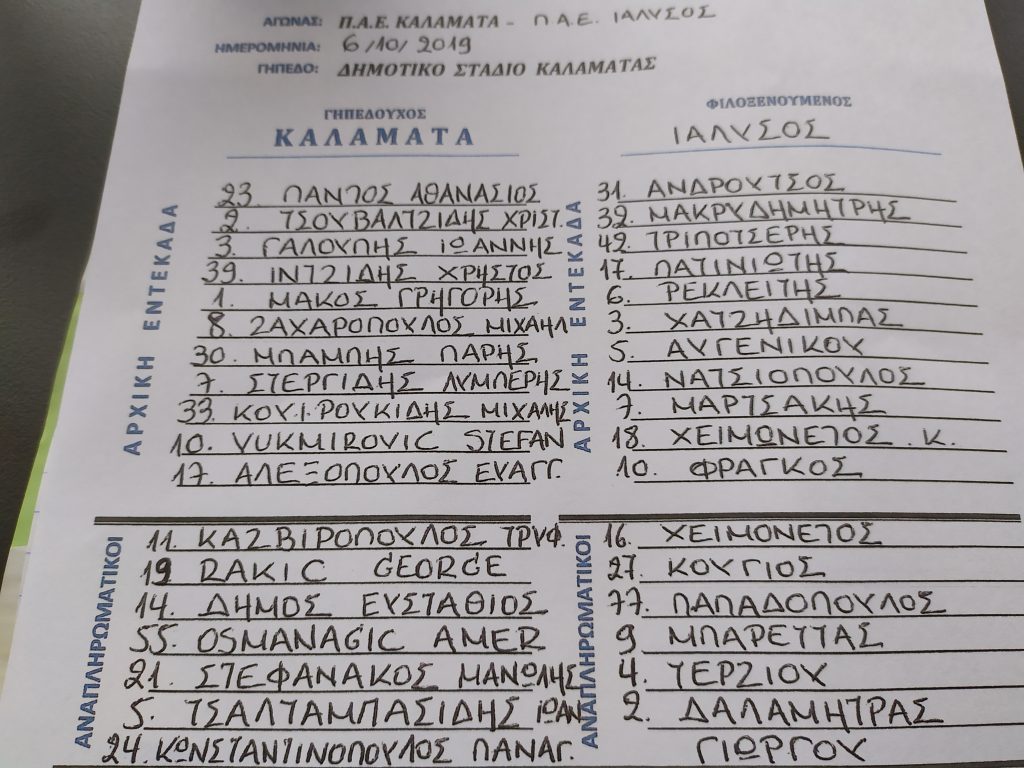 ΑΓΩΝΑΣ: Π.Α.Ε. ΚΑΛΑΜΑΤΑ - Π.Α.Ε. ΙΑΛΥΣΟΣ
ΗΜΕΡΟΜΗΝΙΑ: 6/10/2019
ΓΗΠΕΔΟ: ΔΗΜΟΤΙΚΟ ΣΤΑΔΙΟ ΚΑΛΑΜΑΤΑΣ
ΓΗΠΕΔΟΥΧΟΣ
ΚΑΛΑΜΑΤΑ
ΑΡΧΙΚΗ ΕΝΤΕΚΑΔΑ
23. ΠΑΝΤΟΣ ΑΘΑΝΑΣΙΟΣ
2. ΤΣΟΥΒΑΛΤΖΙΔΗΣ ΧΡΙΣΤ.
3. ΓΑΛΟΥΠΗΣ ΙΩΑΝΝΗΣ
39. ΙΝΤΖΙΔΗΣ ΧΡΗΣΤΟΣ
1. ΜΑΚΟΣ ΓΡΗΓΟΡΗΣ
8. ΖΑΧΑΡΟΠΟΥΛΟΣ ΜΙΧΑΗΛ
30. ΜΠΑΜΠΗΣ ΠΑΡΗΣ
7. ΣΤΕΡΓΙΔΗΣ ΛΥΜΠΕΡΗΣ
33. ΚΟΥΙΡΟΥΚΙΔΗΣ ΜΙΧΑΛΗΣ
10. VUKMIROVIC STEFAN
17. ΑΛΕΞΟΠΟΥΛΟΣ ΕΥΑΓΓ.
ΑΝΑΠΛΗΡΩΜΑΤΙΚΟΙ
11. ΚΑΖΒΙΡΟΠΟΥΛΟΣ ΤΡΥΦ.
19 RAKIC GEORGE
14. ΔΗΜΟΣ ΕΥΣΤΑΘΙΟΣ
55. OSMANAGIC AMER
21. ΣΤΕΦΑΝΑΚΟΣ ΜΑΝΩΛΗΣ
5. ΤΣΑΛΤΑΜΠΑΣΙΔΗΣ ΙΩΑΝ
24. ΚΩΝΣΤΑΝΤΙΝΟΠΟΥΛΟΣ ΠΑΝΑΓ.
ΦΙΛΟΞΕΝΟΥΜΕΝΟΣ
ΙΑΛΥΣΟΣ
ΑΡΧΙΚΗ ΕΝΤΕΚΑΔΑ
31. ΑΝΔΡΟΥΤΣΟΣ
32. ΜΑΚΡΥΔΗΜΗΤΡΗΣ
42. ΤΡΙΠΟΤΣΕΡΗΣ
17. ΠΑΤΙΝΙΩΤΗΣ
6. ΡΕΚΛΕΙΤΗΣ
3. ΧΑΤΖΗΔΙΜΠΑΣ
5. ΑΥΓΕΝΙΚΟΥ
14. ΝΑΤΣΙΟΠΟΥΛΟΣ
7. ΜΑΡΤΣΑΚΗΣ
18. ΧΕΙΜΩΝΕΤΟΣ .Κ.
10. ΦΡΑΓΚΟΣ
ΑΝΑΠΛΗΡΩΜΑΤΙΚΟΙ
16. ΧΕΙΜΟΝΕΤΟΣ
27. ΚΟΥΓΙΟΣ
77. ΠΑΠΑΔΟΠΟΥΛΟΣ
9 ΜΠΑΡΕΤΤΑΣ
4. ΤΕΡΖΙΟΥ
2. ΔΑΛΑΜΗΤΡΑΣ
ΓΙΩΡΓΟΥ